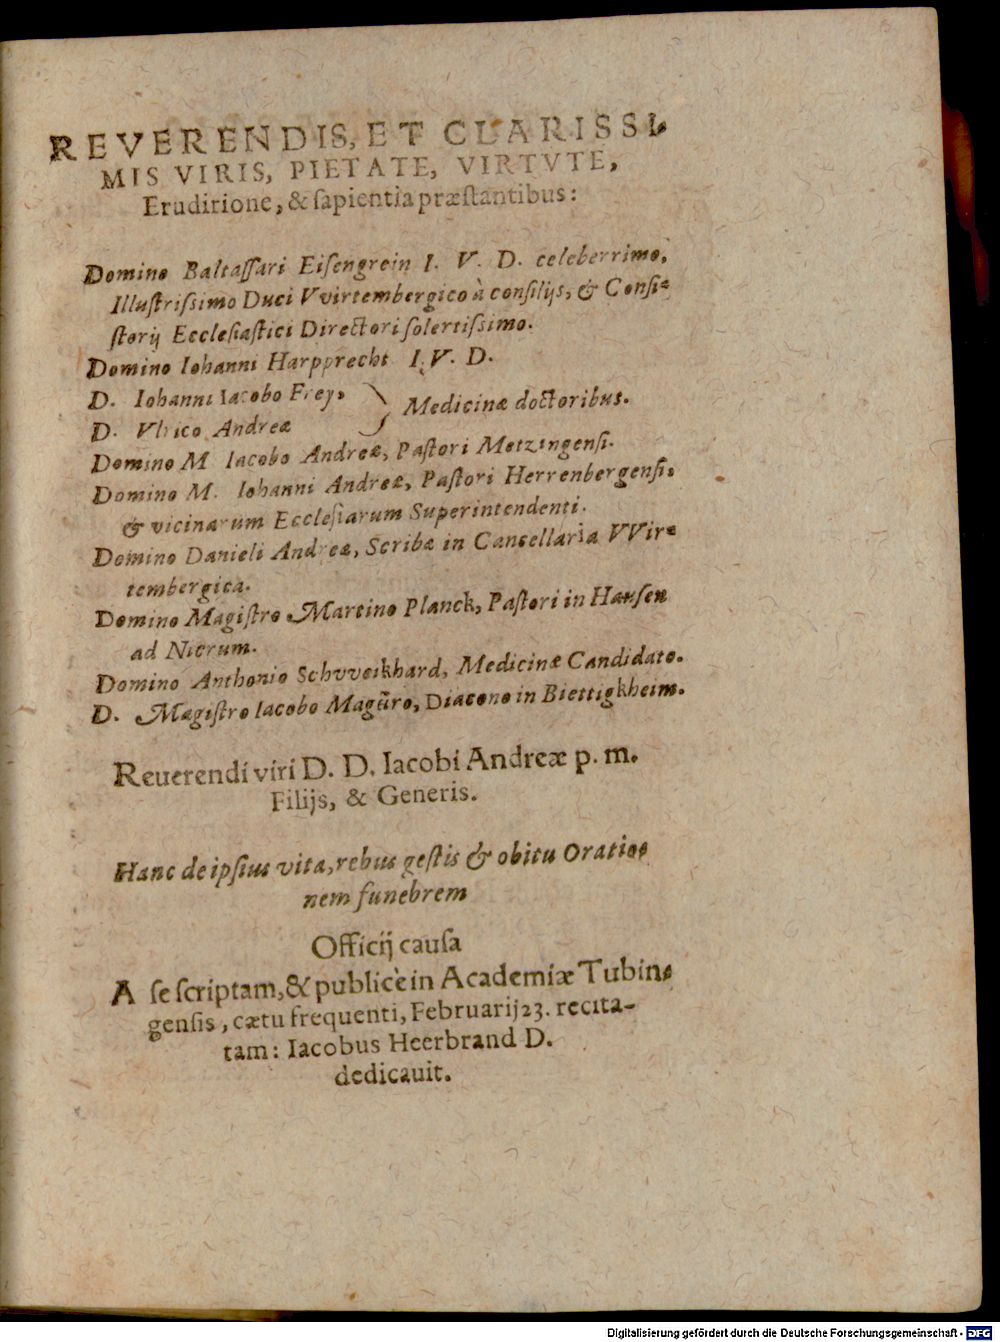 REVERENDIS, ET CLARISSI-
MIS VIRIS, PIETATE, VIRTVTE,
Eruditione, & sapientia præstantibus:
Domino Baltassari Eisengrein I. V. D. celeberrimo,
Illustrissimo Duci VVirtembergico à consilijs, & Consi-
storij Ecclesiastici Directori solertissimo.
Domino Iohanni Harpprecht I. V. D.
D. Iohanni Iacobo Frey,
D. Vlrico Andreæ
Medicinæ doctoribus.
Domino M Iacobo Andreæ, Pastori Metzingensi.
Domino M. Iohanni Andreæ, Pastori Herrenbergensi,
& vicinarum Ecclesiarum Superintendenti.
Domino Danieli Andreæ, Scribæ in Cancellaria VVir-
tembergica.
Domino Magistro Martino Planck, Pastori in Hausen
ad Nicrum.
Domino Anthonio Schvveikhard, Medicinæ Candidato.
D. Magistro Iacobo Magiro, Diacono in Biettigkheim.
Reuerendi viri D. D. Iacobi Andreæ p. m.
Filijs, & Generis.
Hanc de ipsius vita, rebus gestis & obitu Oratio-
nem funebrem
Officij causa
A se scriptam, & publicè in Academiæ Tubin-
gensis, cætu frequenti, Februarij 23. recita-
tam: Iacobus Heerbrand D.
dedicauit.
Digitalisierung gefördert durch die Deutsche Forschungsgemeinschaft - DFG